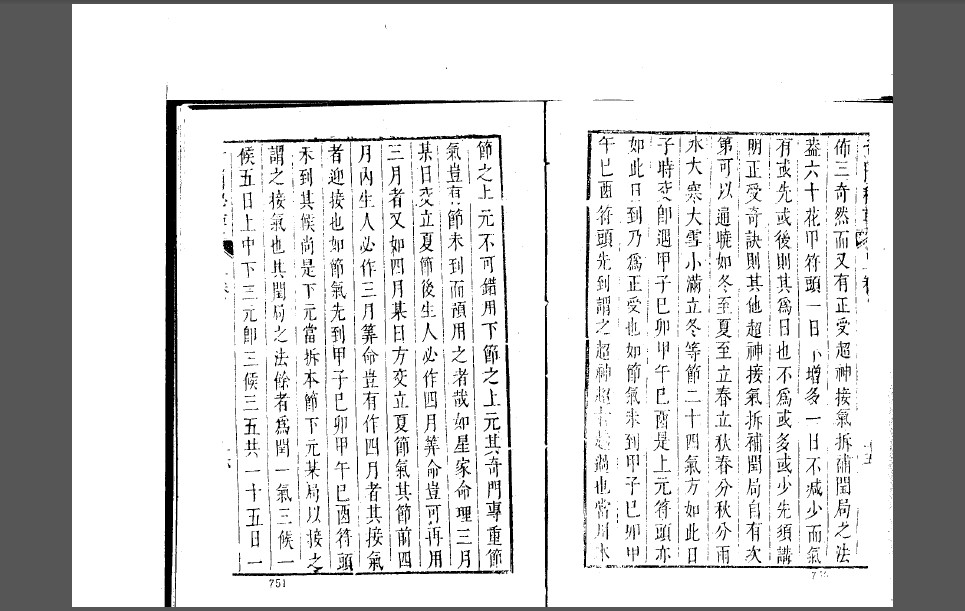 佈三奇然而又有正受超神接氣拆補閏局之法
蓋六十花甲符頭一日不增多一日不減少而氣
有或先或後則其為日也不為或多或少先須講
明正受奇訣則其他超神接氣拆補閏局自有次
第可以通曉如冬至夏至立春立秋春分秋分雨
水大寒大雪小滿立冬等節二十四氣方如此日
子時交即遇甲子己卯甲午己酉是上元符頭亦
如此日到乃為正受也如節氣未到甲子己卯甲
午己酉符頭先到謂之超神超者越過也當用本
節之上元不可錯用下節之上元其奇門專重節
氣豈有節未到而預用之者哉如星家命理三月
某日交立夏節後生人必作四月筭命豈可再用
三月者又如四月某日方交立夏節氣其節前四
月內生人必作三月筭命豈有作四月者其接氣
者迎接也如節氣先到甲子己卯甲午己酉符頭
未到其候尚是下元當拆本節下元某局以接之
謂之接氣也其閏局之法餘者為閏一氣三候一
候五日上中下三元卽三候三五共一十五日一
751